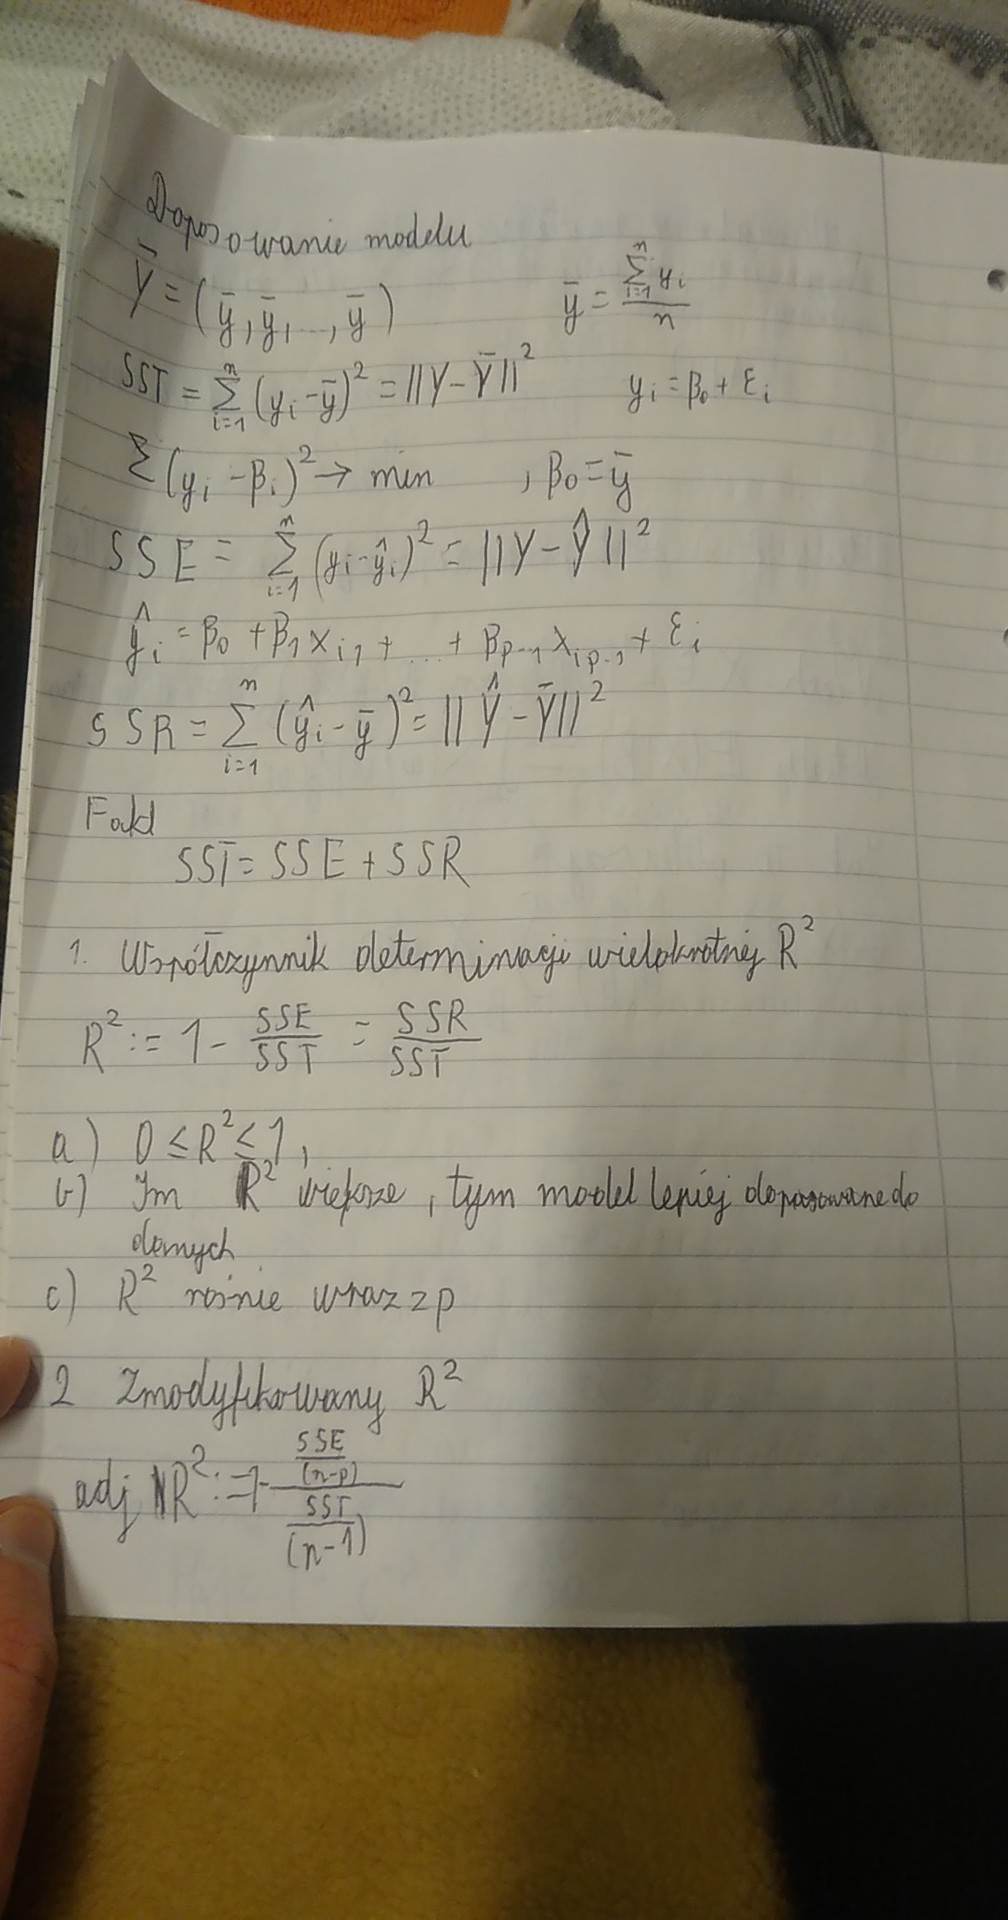 Doposowanie modelu
Ȳ = (ȳ, ȳ, ..., ȳ)    ȳ = \frac{\sum_{i=1}^{n} y_i}{n}
SST = \sum_{i=1}^{n} (y_i - ȳ)^2 = ||Y - Ȳ||^2    y_i = β_0 + ε_i
Σ(y_i - β_i)^2 → min    , β_0 = ȳ
SSE = \sum_{i=1}^{n} (y_i - ŷ_i)^2 = ||Y - Ŷ||^2
ŷ_i = β_0 + β_1 x_{i1} + ... + β_{p-1} x_{ip-1} + ε_i
SSR = \sum_{i=1}^{n} (ŷ_i - ȳ)^2 = ||Ŷ - Ȳ||^2
Fakt
SST = SSE + SSR
1. Współczynnik determinacji wielokrotnej R^2
R^2 := 1 - \frac{SSE}{SST} = \frac{SSR}{SST}
a) 0 ≤ R^2 ≤ 1,
b) Im R^2 większe, tym model lepiej dopasowane do
danych
c) R^2 rośnie wraz z p
2 Zmodyfikowany R^2
adj R^2 := 1 - \frac{\frac{SSE}{(n-p)}}{\frac{SST}{(n-1)}}